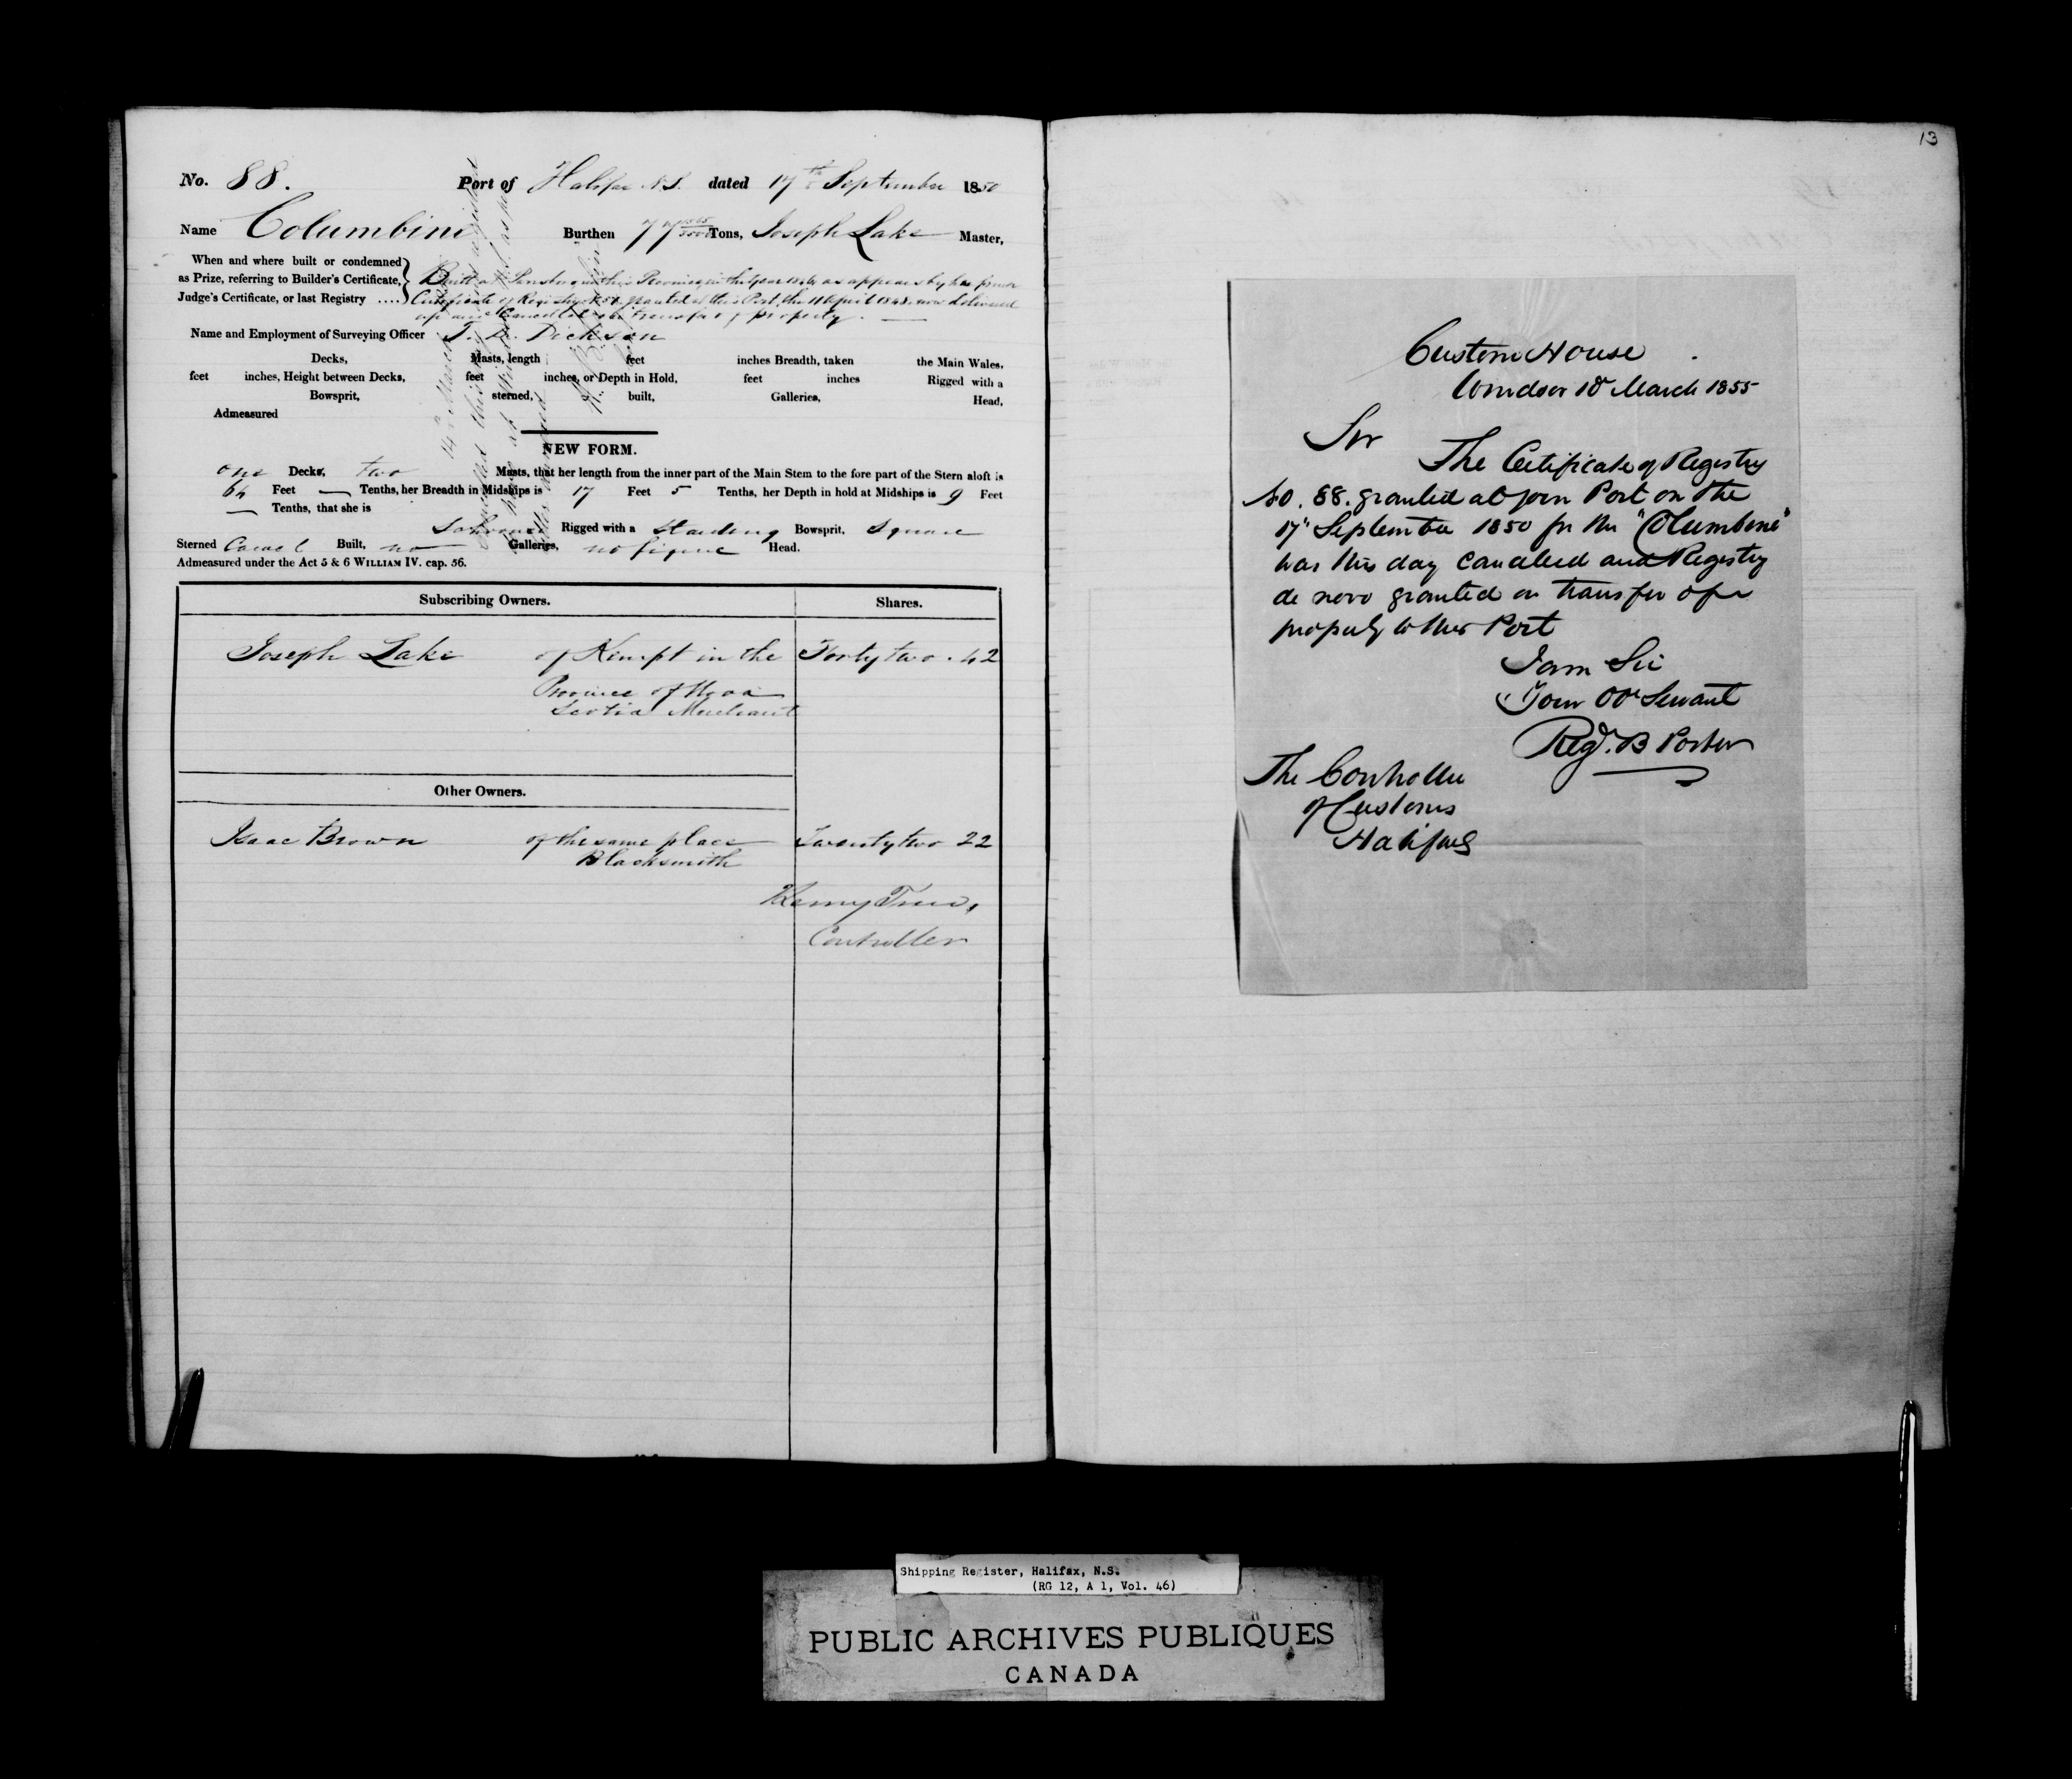 No. 88. Port of Halifax N.S. dated 17th September 1850
Name Columbine Burthen 77 Tons, Joseph Lake Master,
When and where built or condemned
as Prize, referring to Builder's Certificate,
Judge's Certificate, or last Registry ....
Built at in this Province in the Year as appears by her former
Certificate of Registry No 58 granted at this Port, the 11 April 1848 now delivered
up and Cancelled on transfer of property.
Name and Employment of Surveying Officer T. Dickson
Decks, Masts, length feet inches Breadth, taken the Main Wales,
feet inches, Height between Decks, feet inches, or Depth in Hold, feet inches Rigged with a
Bowsprit, sterned, built, Galleries, Head,
Admeasured
NEW FORM.
one Decks, two Masts, that her length from the inner part of the Main Stem to the fore part of the Stern aloft is
64 Feet — Tenths, her Breadth in Midships is 17 Feet 5 Tenths, her Depth in hold at Midships is 9 Feet
— Tenths, that she is
Schooner Rigged with a Standing Bowsprit, Square
Sterned Carvel Built, no Galleries, no figure Head.
Admeasured under the Act 5 & 6 WILLIAM IV. cap. 56.
Subscribing Owners. Shares.
Joseph Lake of Kempt in the Forty two . 42
Province of Nova
Scotia Merchant
Other Owners.
Isaac Brown of the same place Twenty two 22
Blacksmith
Henry
Controller
13
Custom House
Windsor March 1855
Sir
The Certificate of Registry
No. 88. granted at your Port on the
17" September 1850 for the "Columbine"
was this day cancelled and Registry
de novo granted on transfer of
property to this Port
I am Sir
Your Ob Servant
Regd. B Porter
The Controller
of Customs
Halifax
Shipping Register, Halifax, N.S.
(RG 12, A 1, Vol. 46)
PUBLIC ARCHIVES PUBLIQUES
CANADA